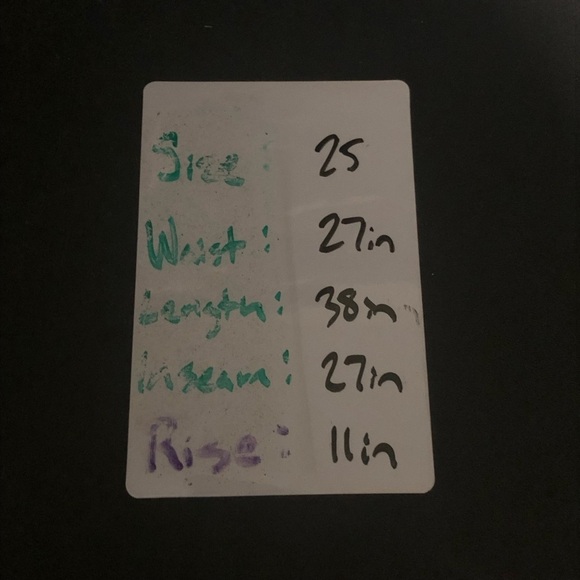 Size: 25
Waist: 27in
Length: 38in
Inseam: 27in
Rise: 11in